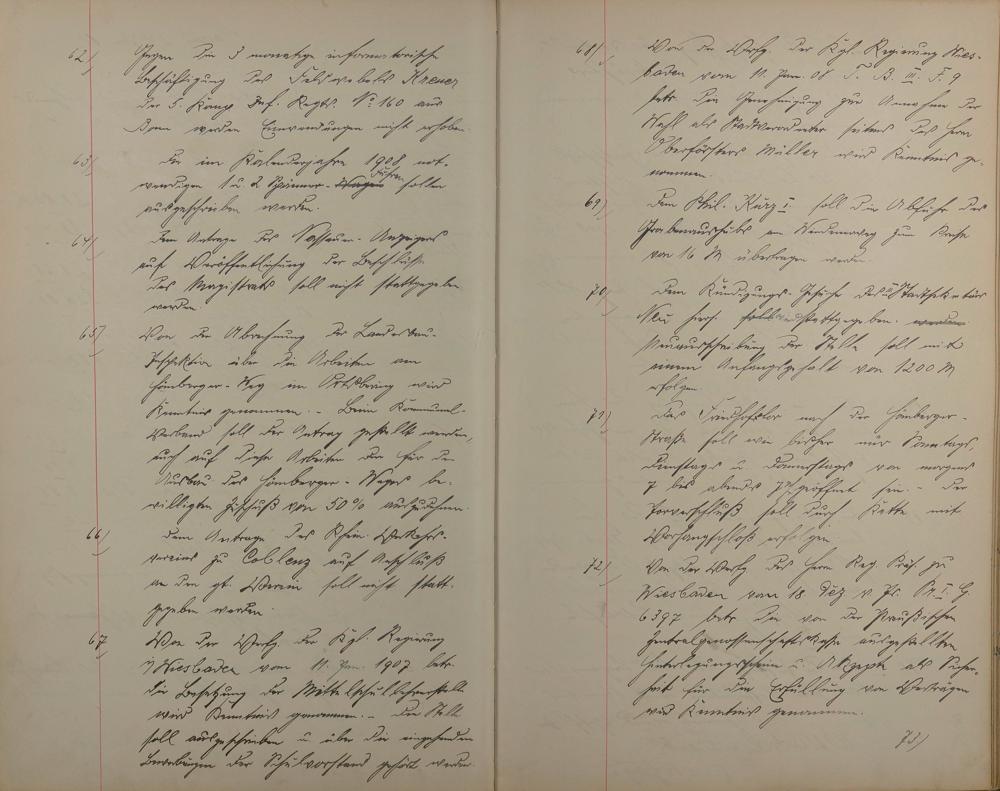 62) Gegen die 3 monatige informatorische
Beschäftigung des Feldwebels Kreuer
der 5. Komp Inf. Regts. № 160 aus
Bonn werden Einwendungen nicht erhoben.
63) Die im Kalenderjahre 1908 not-
wendigen 1 u. 2 Spänner-Wagen Fuhren sollen
ausgeschrieben werden.
64) Dem Antrage des Nassauer-Anzeigers
auf Veröffentlichung der Beschlüsse
des Magistrats soll nicht stattgegeben
werden.
65) Von der Abrechnung der Landesbau-
Inspektion über die Arbeiten am
Hömberger-Weg im Ortsbering wird
Kenntnis genommen. - Beim Kommunal-
Verband soll der Antrag gestellt werden,
auch auf diese Arbeiten den für den
Ausbau des Hömberger-Weges be-
willigten Zuschuß von 50% auszudehnen.
66) Dem Antrage des Rhein. Verkehrs-
vereins zu Coblenz auf Anschluß
an den gt. Verein soll nicht statt-
gegeben werden.
67 Von der Verfg. der Kgl. Regierung
Wiesbaden vom 11. Jan. 1907 betr.
die Besetzung der Mittelschullehrerstelle
wird Kenntnis genommen. - Die Stelle
soll ausgeschrieben u. über die eingehenden
Bewerbungen der Schulvorstand gehört werden.
68) Von der Verfg. der Kgl. Regierung Wies-
baden vom 11. Jan. 08 I. B. III. F. 9
betr. die Genehmigung zur Annahme der
Wahl als Stadtverordneter seitens des Herrn
Oberförsters Müller wird Kenntnis ge-
nommen.
69) Dem Phil. Kurz I. soll die Abfuhr des
Grabenaushubs am zum Preise
von 16 M übertragen werden.
70) Dem Kündigungs-Gesuche des Stadtsekretärs
Neu hier. soll stattgegeben. werden
Neuausschreibung der Stelle soll mit
einem Anfangsgehalt von 1200 M
erfolgen.
71) Das Friedhofstor nach der Hömberger-
Straße soll wie bisher nur Sonntags,
Dienstags u. Donnerstags von morgens
7 bis abends 7 geöffnet sein. - Der
Torverschluß soll durch Kette mit
Vorhangschloß erfolgen.
72) Von der Verfg. des Herrn Reg. Präs. zu
Wiesbaden vom 18. Dez v. Js. Pr. I. G.
6397 betr. die von der Preußischen
Zentralgenossenschaftskasse ausgestellten
Hinterlegungsscheine u. Akzepte als Sicher-
heit für die Erfüllung von Verträgen
wird Kenntnis genommen.
73)